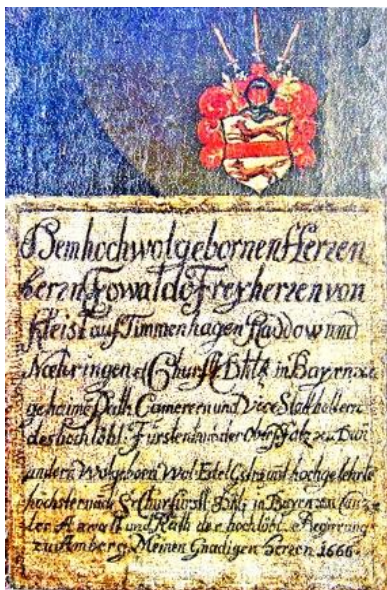 Dem hochwolgebornen Herren
herzn Fowaldo Freyherzen von
Kleist auf Timmenhagen Raddow und
Næhringen Churfl. in Bayrn
geheime Rath Camerern und Vice Stathaltern
des hochlöbl. Fürstenthumb der Ober Pfalz
andern Wolgeborn Wol Edel und hochgelehrte
Churfürstl. in Bayern
Anwalt und Rath der hochlöbl. Regirung
zu Amberg Meinen Gnadigen herzen 1666